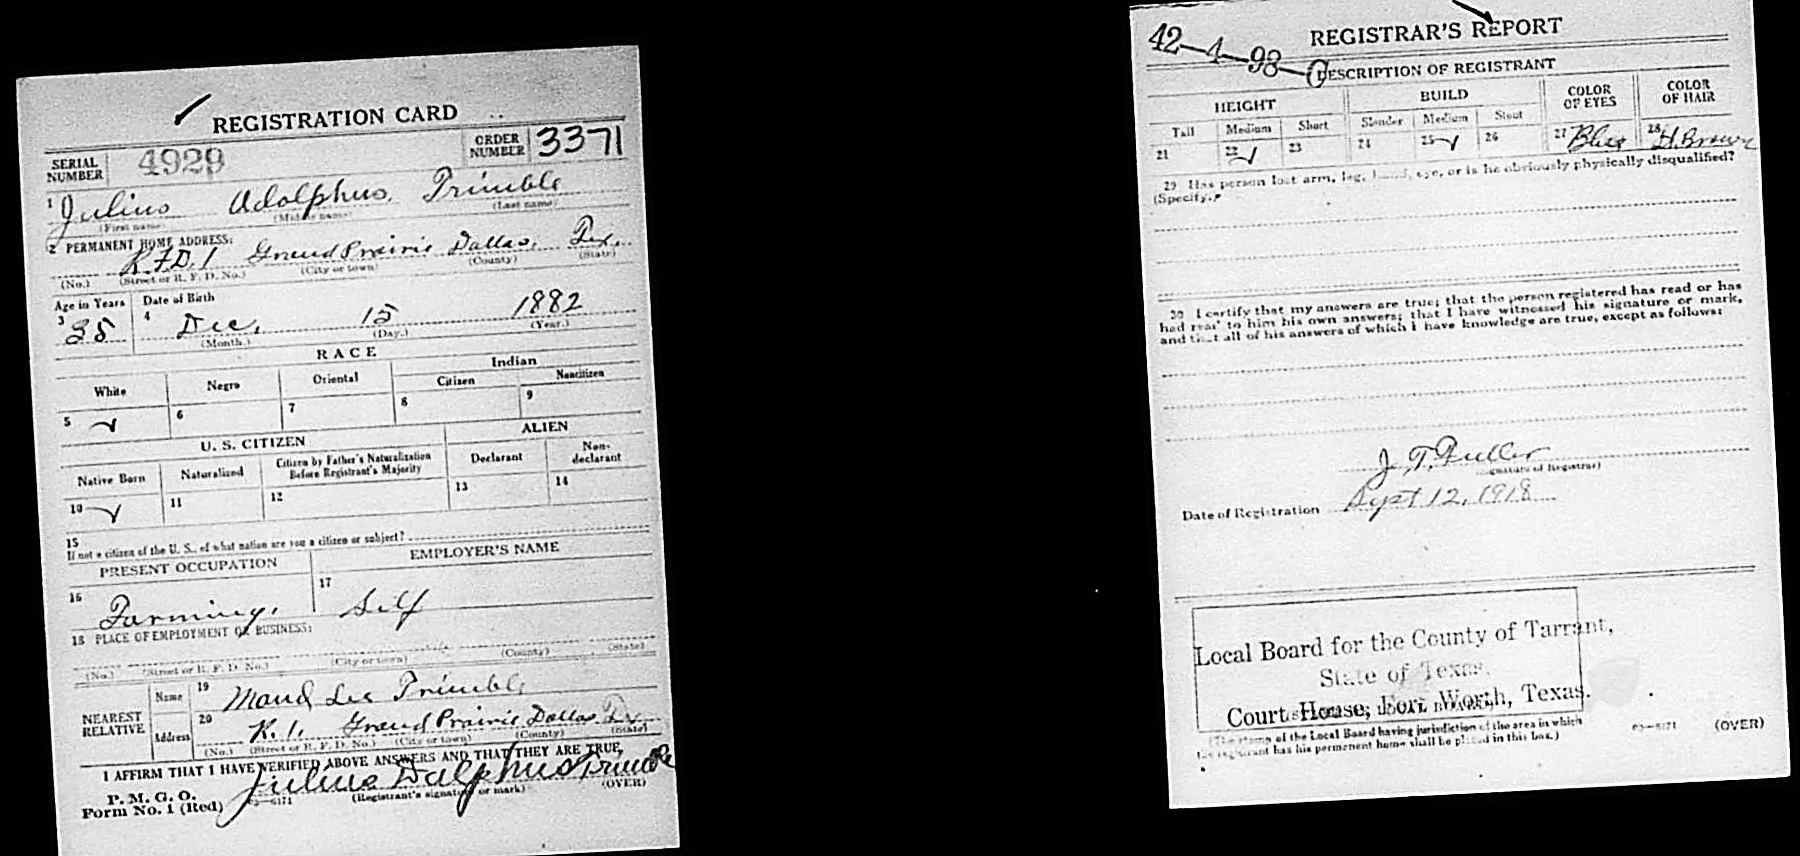 REGISTRATION CARD
SERIAL NUMBER 4929 ORDER NUMBER 3371
1 Julius Adolphus Trimble
(First name) (Middle name) (Last name)
2 PERMANENT HOME ADDRESS:
R.F.D. 1 Grand Prairie Dallas, Tex.
(No.) (Street or R. F. D. No.) (City or town) (County) (State)
Age in Years Date of Birth
3 35 4 Dec. 15 1882
(Month.) (Day.) (Year.)
RACE
White Negro Oriental Indian
Citizen Noncitizen
5 ✓ 6 7 8 9
U. S. CITIZEN ALIEN
Native Born Naturalized Citizen by Father's Naturalization Before Registrant's Majority Declarant Non-declarant
10 ✓ 11 12 13 14
15
If not a citizen of the U. S., of what nation are you a citizen or subject?
PRESENT OCCUPATION EMPLOYER'S NAME
16 Farming. 17 Self
18 PLACE OF EMPLOYMENT OR BUSINESS:
(No.) (Street or R. F. D. No.) (City or town) (County) (State)
NEAREST RELATIVE Name 19 Maud Lee Trimble
Address 20 R. 1. Grand Prairie Dallas Tex.
(No.) (Street or R. F. D. No.) (City or town) (County) (State)
I AFFIRM THAT I HAVE VERIFIED ABOVE ANSWERS AND THAT THEY ARE TRUE.
P. M. G. O.
Form No. 1 (Red) Julius Dalphus Trimble
(Registrant's signature or mark) (OVER)
REGISTRAR'S REPORT
42-4-98-C
DESCRIPTION OF REGISTRANT
HEIGHT BUILD COLOR OF EYES COLOR OF HAIR
Tall Medium Short Slender Medium Stout
21 22 ✓ 23 24 25 ✓ 26 27 Blue 28 Brown
29 Has person lost arm, leg, hand, eye, or is he obviously physically disqualified?
(Specify.)
30 I certify that my answers are true; that the person registered has read or has
had read to him his own answers; that I have witnessed his signature or mark,
and that all of his answers of which I have knowledge are true, except as follows:
J. T. Fuller
(Signature of Registrar)
Date of Registration Sept 12, 1918
Local Board for the County of Tarrant,
State of Texas.
Court House, Fort Worth, Texas.
(The stamp of the Local Board having jurisdiction of the area in which
the registrant has his permanent home shall be placed in this box.)
(OVER)